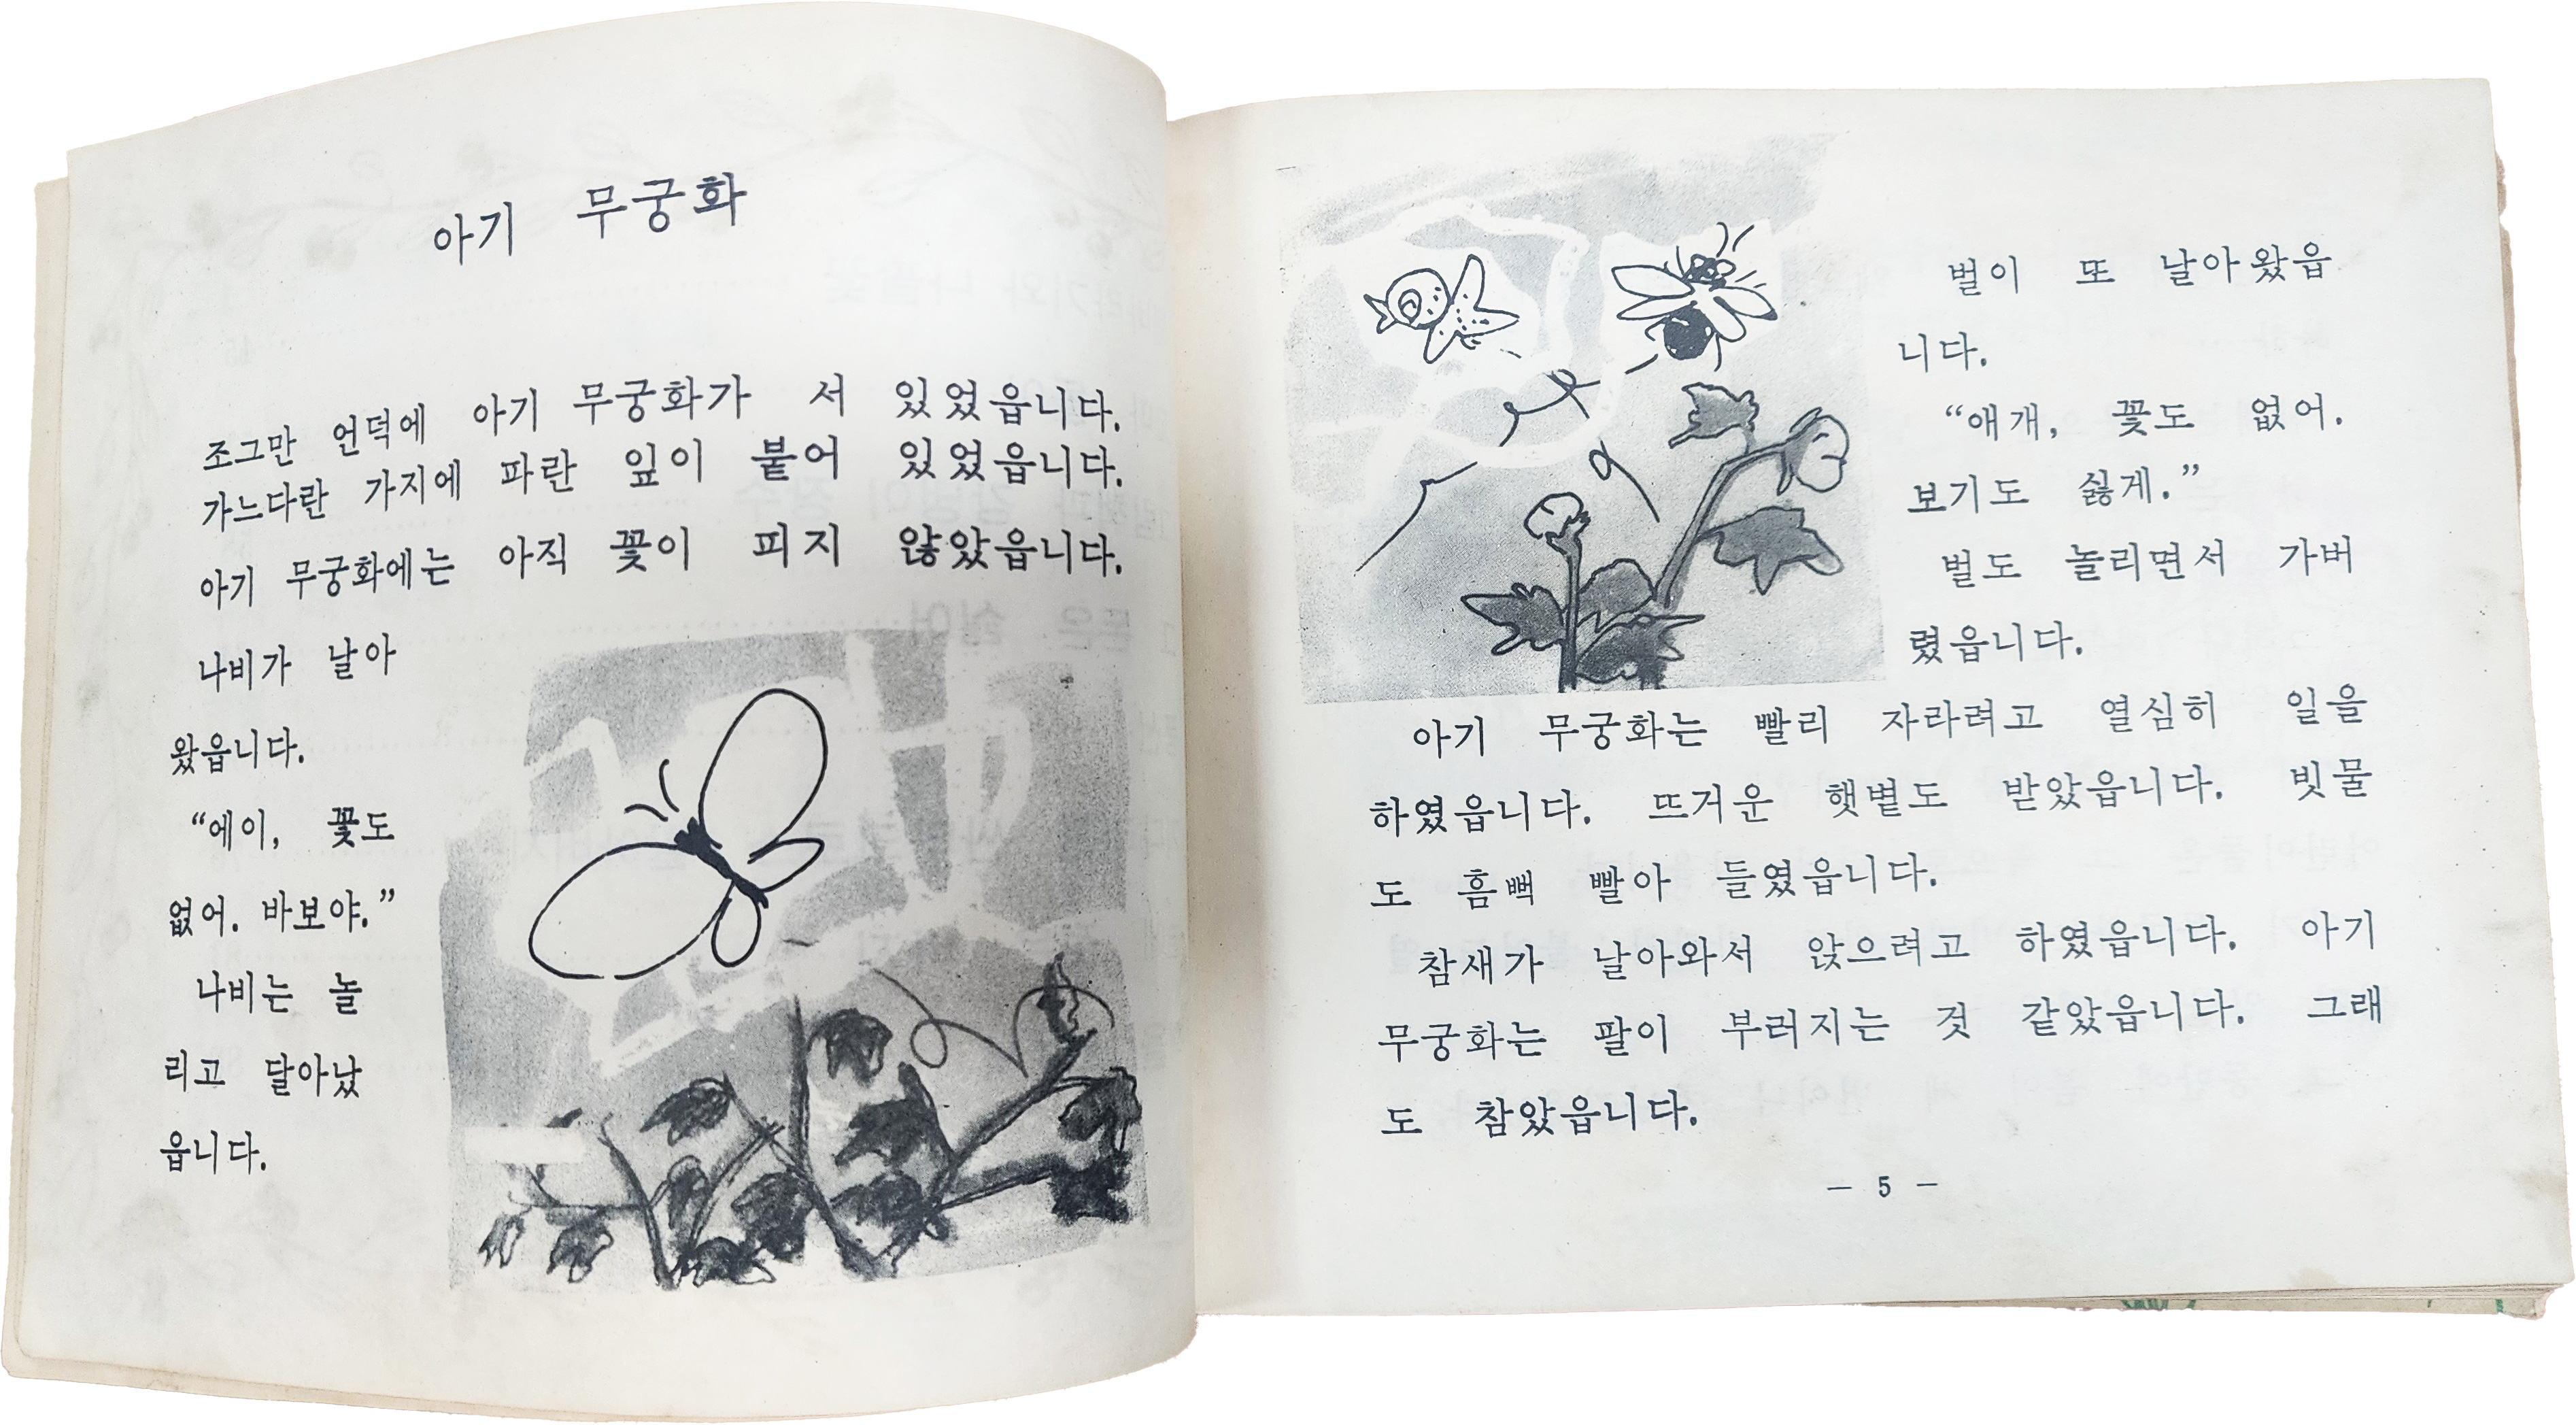 아기 무궁화
조그만 언덕에 아기 무궁화가 서 있었읍니다.
가느다란 가지에 파란 잎이 붙어 있었읍니다.
아기 무궁화에는 아직 꽃이 피지 않았읍니다.
나비가 날아
왔읍니다.
“에이, 꽃도
없어. 바보야.”
나비는 놀
리고 달아났
읍니다.
벌이 또 날아왔읍
니다.
“애개, 꽃도 없어.
보기도 싫게.”
벌도 놀리면서 가버
렸읍니다.
아기 무궁화는 빨리 자라려고 열심히 일을
하였읍니다. 뜨거운 햇볕도 받았읍니다. 빗물
도 흠뻑 빨아 들였읍니다.
참새가 날아와서 앉으려고 하였읍니다. 아기
무궁화는 팔이 부러지는 것 같았읍니다. 그래
도 참았읍니다.
— 5 —